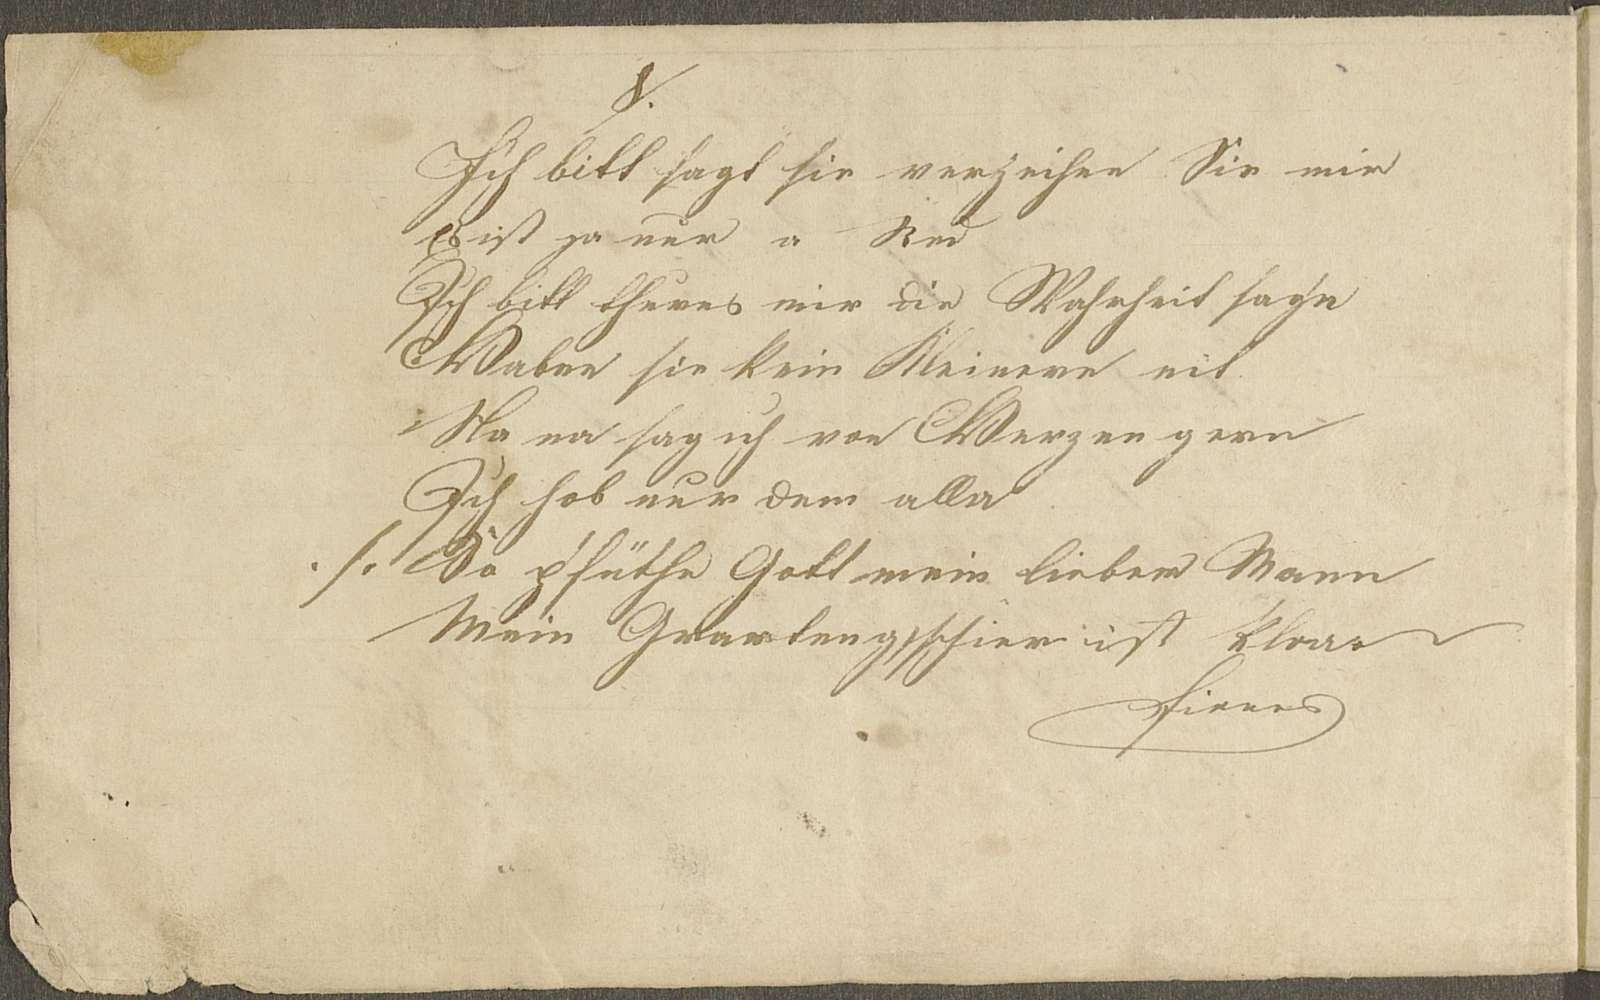 8.
Ich bitt sagt sie verzeihen Sie mir
Es ist ja nur a Red
Ich bitt thuens mir die Wahrheit sag'n
Haben sie kein Kleinern nit
Na na sag ich von Herzen gern
Ich hob nur dem alla
./. So pfüthe Gott mein lieber Mann
Mein Gvartengschier ist kloar
Fienes